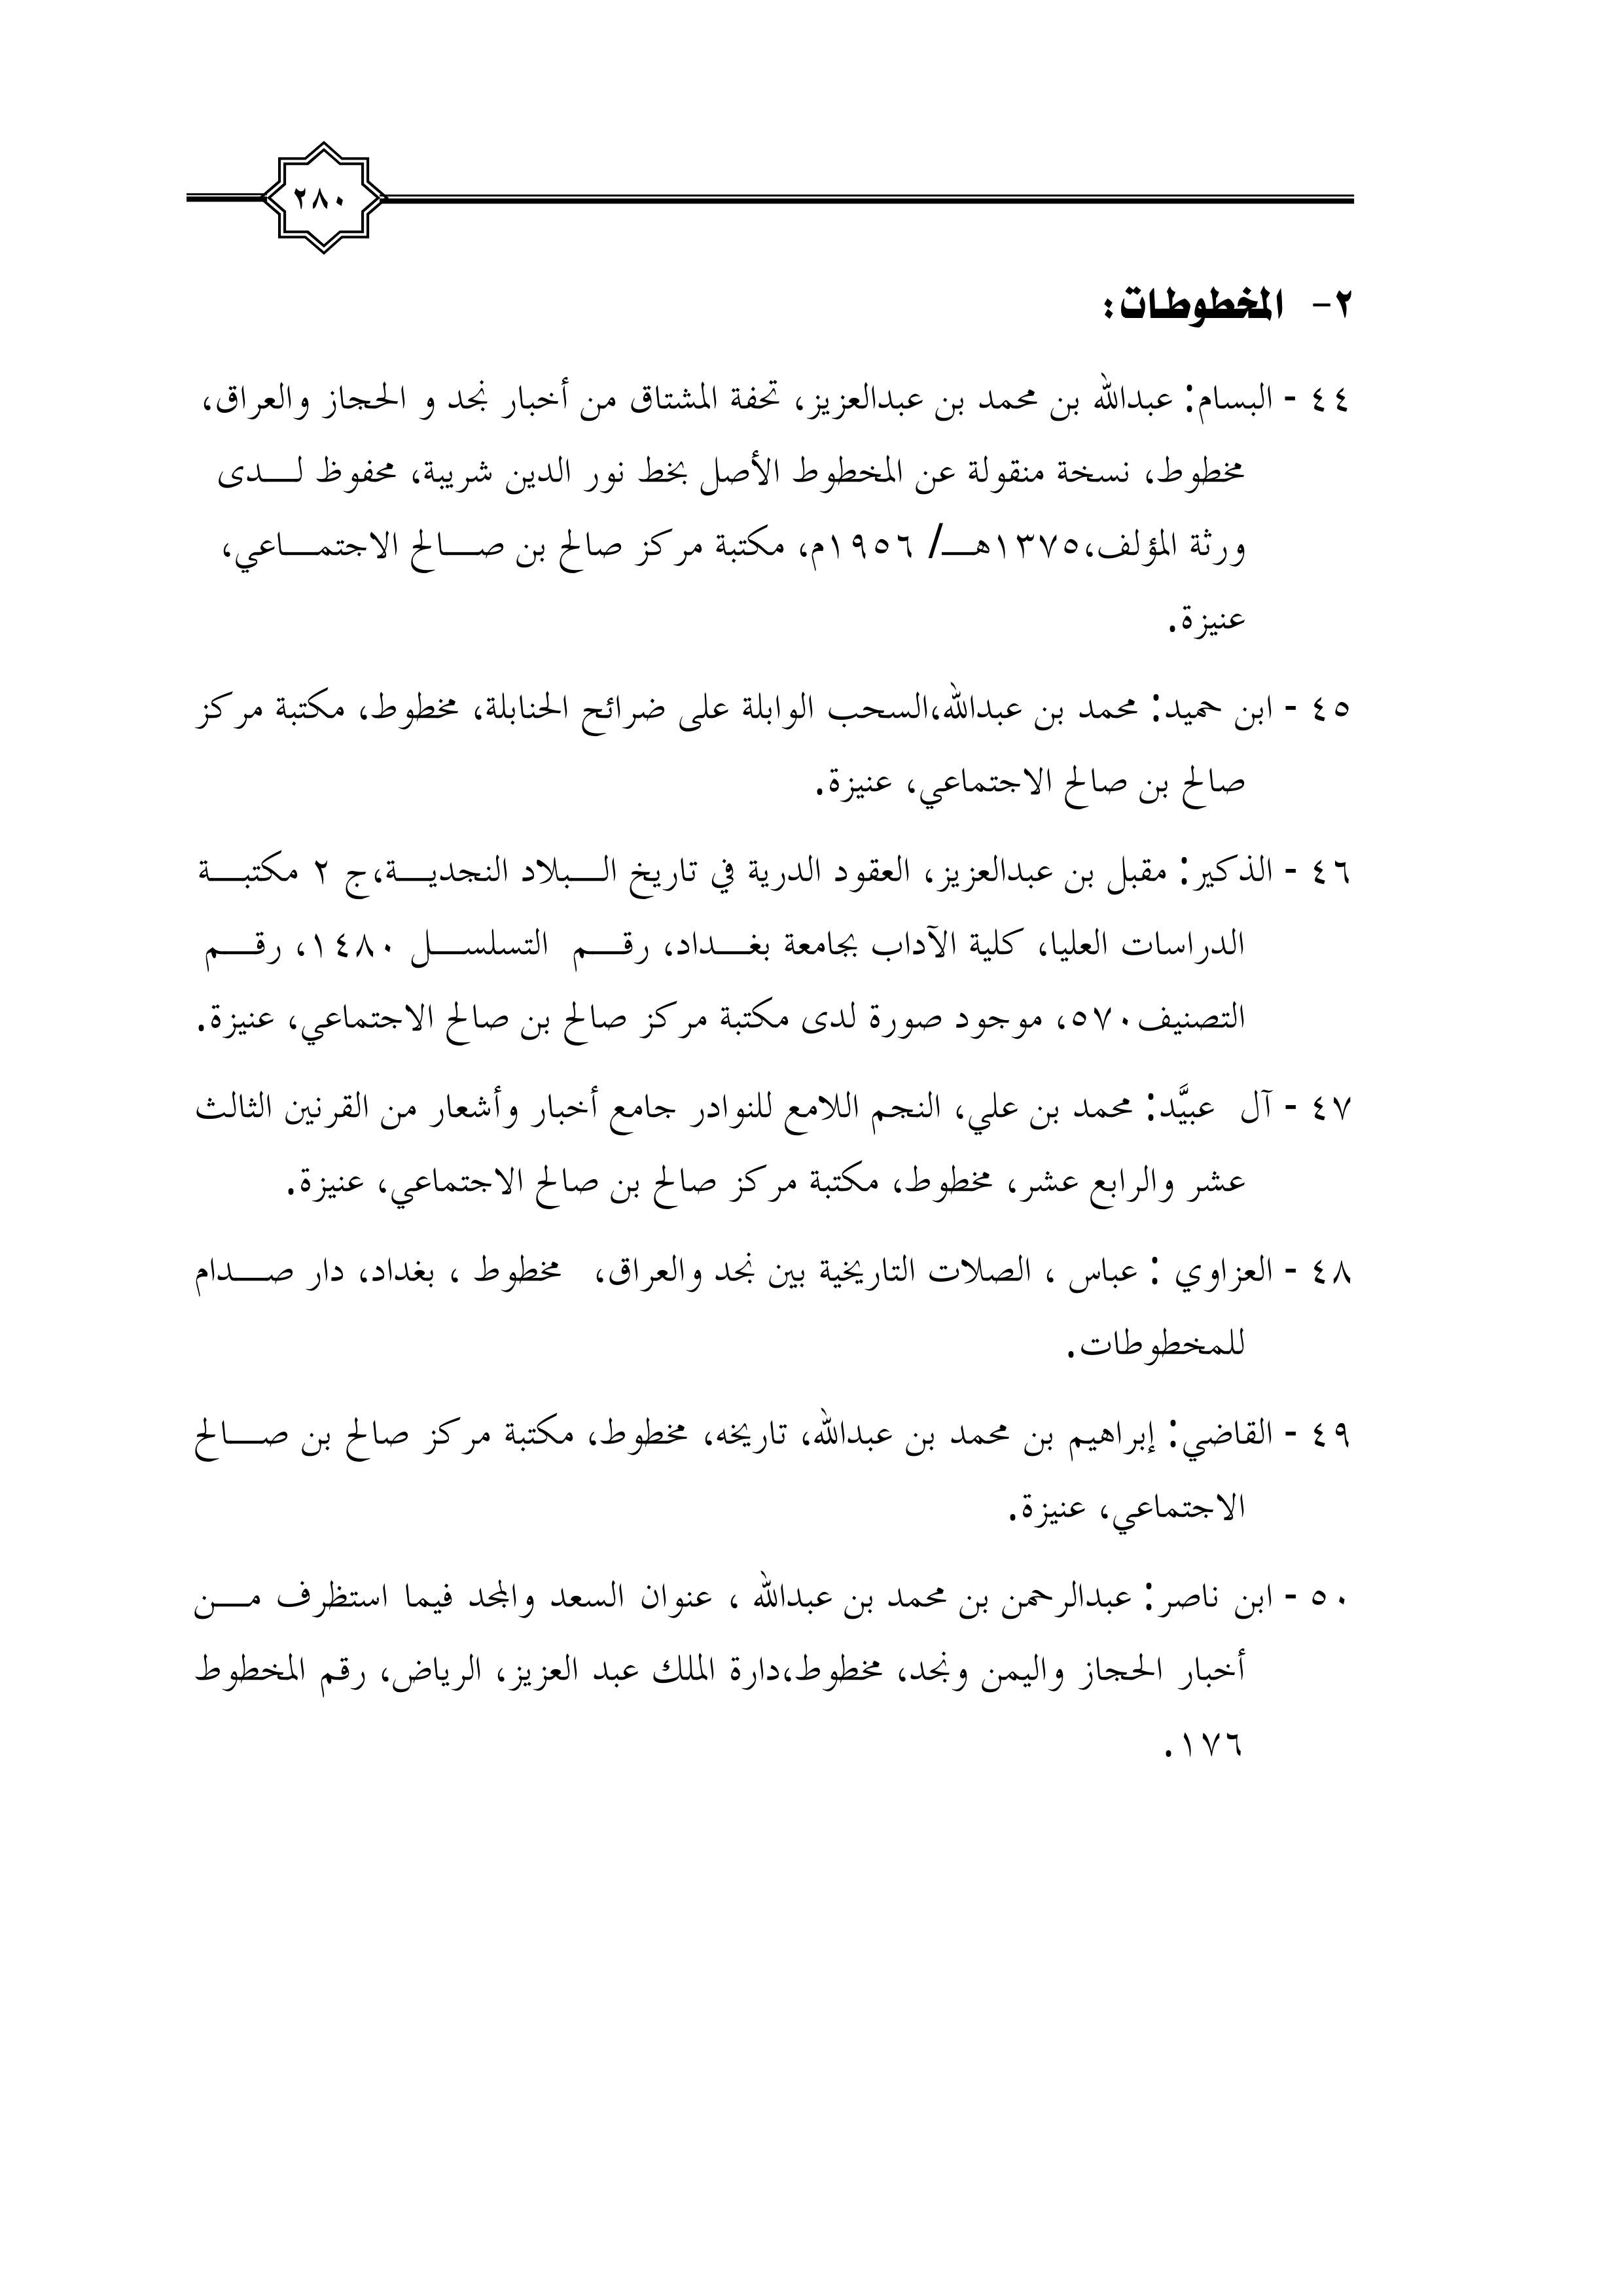 ٢٨٠
٢- المخطوطات:
٤٤ - البسام: عبدالله بن محمد بن عبدالعزيز، تحفة المشتاق من أخبار نجد و الحجاز والعراق،
مخطوط، نسخة منقولة عن المخطوط الأصل بخط نور الدين شريبة، محفوظ لـــدى
ورثة المؤلف،١٣٧٥هـــ/ ١٩٥٦م، مكتبة مركز صالح بن صـــالح الاجتمـــاعي،
عنيزة.
٤٥ - ابن حميد: محمد بن عبدالله،السحب الوابلة على ضرائح الحنابلة، مخطوط، مكتبة مركز
صالح بن صالح الاجتماعي، عنيزة.
٤٦ - الذكير: مقبل بن عبدالعزيز، العقود الدرية في تاريخ الـــبلاد النجديـــة،ج ٢ مكتبـــة
الدراسات العليا، كلية الآداب بجامعة بغـــداد، رقـــم التسلســـل ١٤٨٠، رقـــم
التصنيف٥٧٠، موجود صورة لدى مكتبة مركز صالح بن صالح الاجتماعي، عنيزة.
٤٧ - آل عبيَّد: محمد بن علي، النجم اللامع للنوادر جامع أخبار وأشعار من القرنين الثالث
عشر والرابع عشر، مخطوط، مكتبة مركز صالح بن صالح الاجتماعي، عنيزة.
٤٨ - العزاوي : عباس ، الصلات التاريخية بين نجد والعراق، مخطوط ، بغداد، دار صـــدام
للمخطوطات.
٤٩ - القاضي: إبراهيم بن محمد بن عبدالله، تاريخه، مخطوط، مكتبة مركز صالح بن صـــالح
الاجتماعي، عنيزة.
٥٠ - ابن ناصر: عبدالرحمن بن محمد بن عبدالله ، عنوان السعد والمجد فيما استظرف مـــن
أخبار الحجاز واليمن ونجد، مخطوط،دارة الملك عبد العزيز، الرياض، رقم المخطوط
١٧٦.